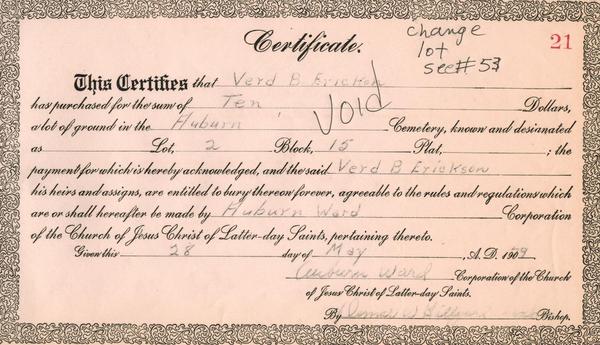 change
lot
see # 53
21
Certificate.
This Certifies that Verd B Erickson
has purchased for the sum of Ten Dollars,
VOID
a lot of ground in the Auburn Cemetery, known and desianated
as Lot, 2 Block, 15 Plat, ; the
payment for which is hereby acknowledged, and the said Verd B Erickson
his heirs and assigns, are entitled to bury thereon forever, agreeable to the rules and regulations which
are or shall hereafter be made by Auburn Ward Corporation
of the Church of Jesus Christ of Latter-day Saints, pertaining thereto.
Given this 28 day of May A. D. 1959
Auburn Ward Corporation of the Church
of Jesus Christ of Latter-day Saints.
By Bishop.